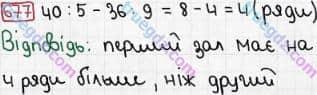 677 40 : 5 - 36 : 9 = 8 - 4 = 4 (ряди)
Відповідь: перший зал має на
4 ряди більше, ніж другий